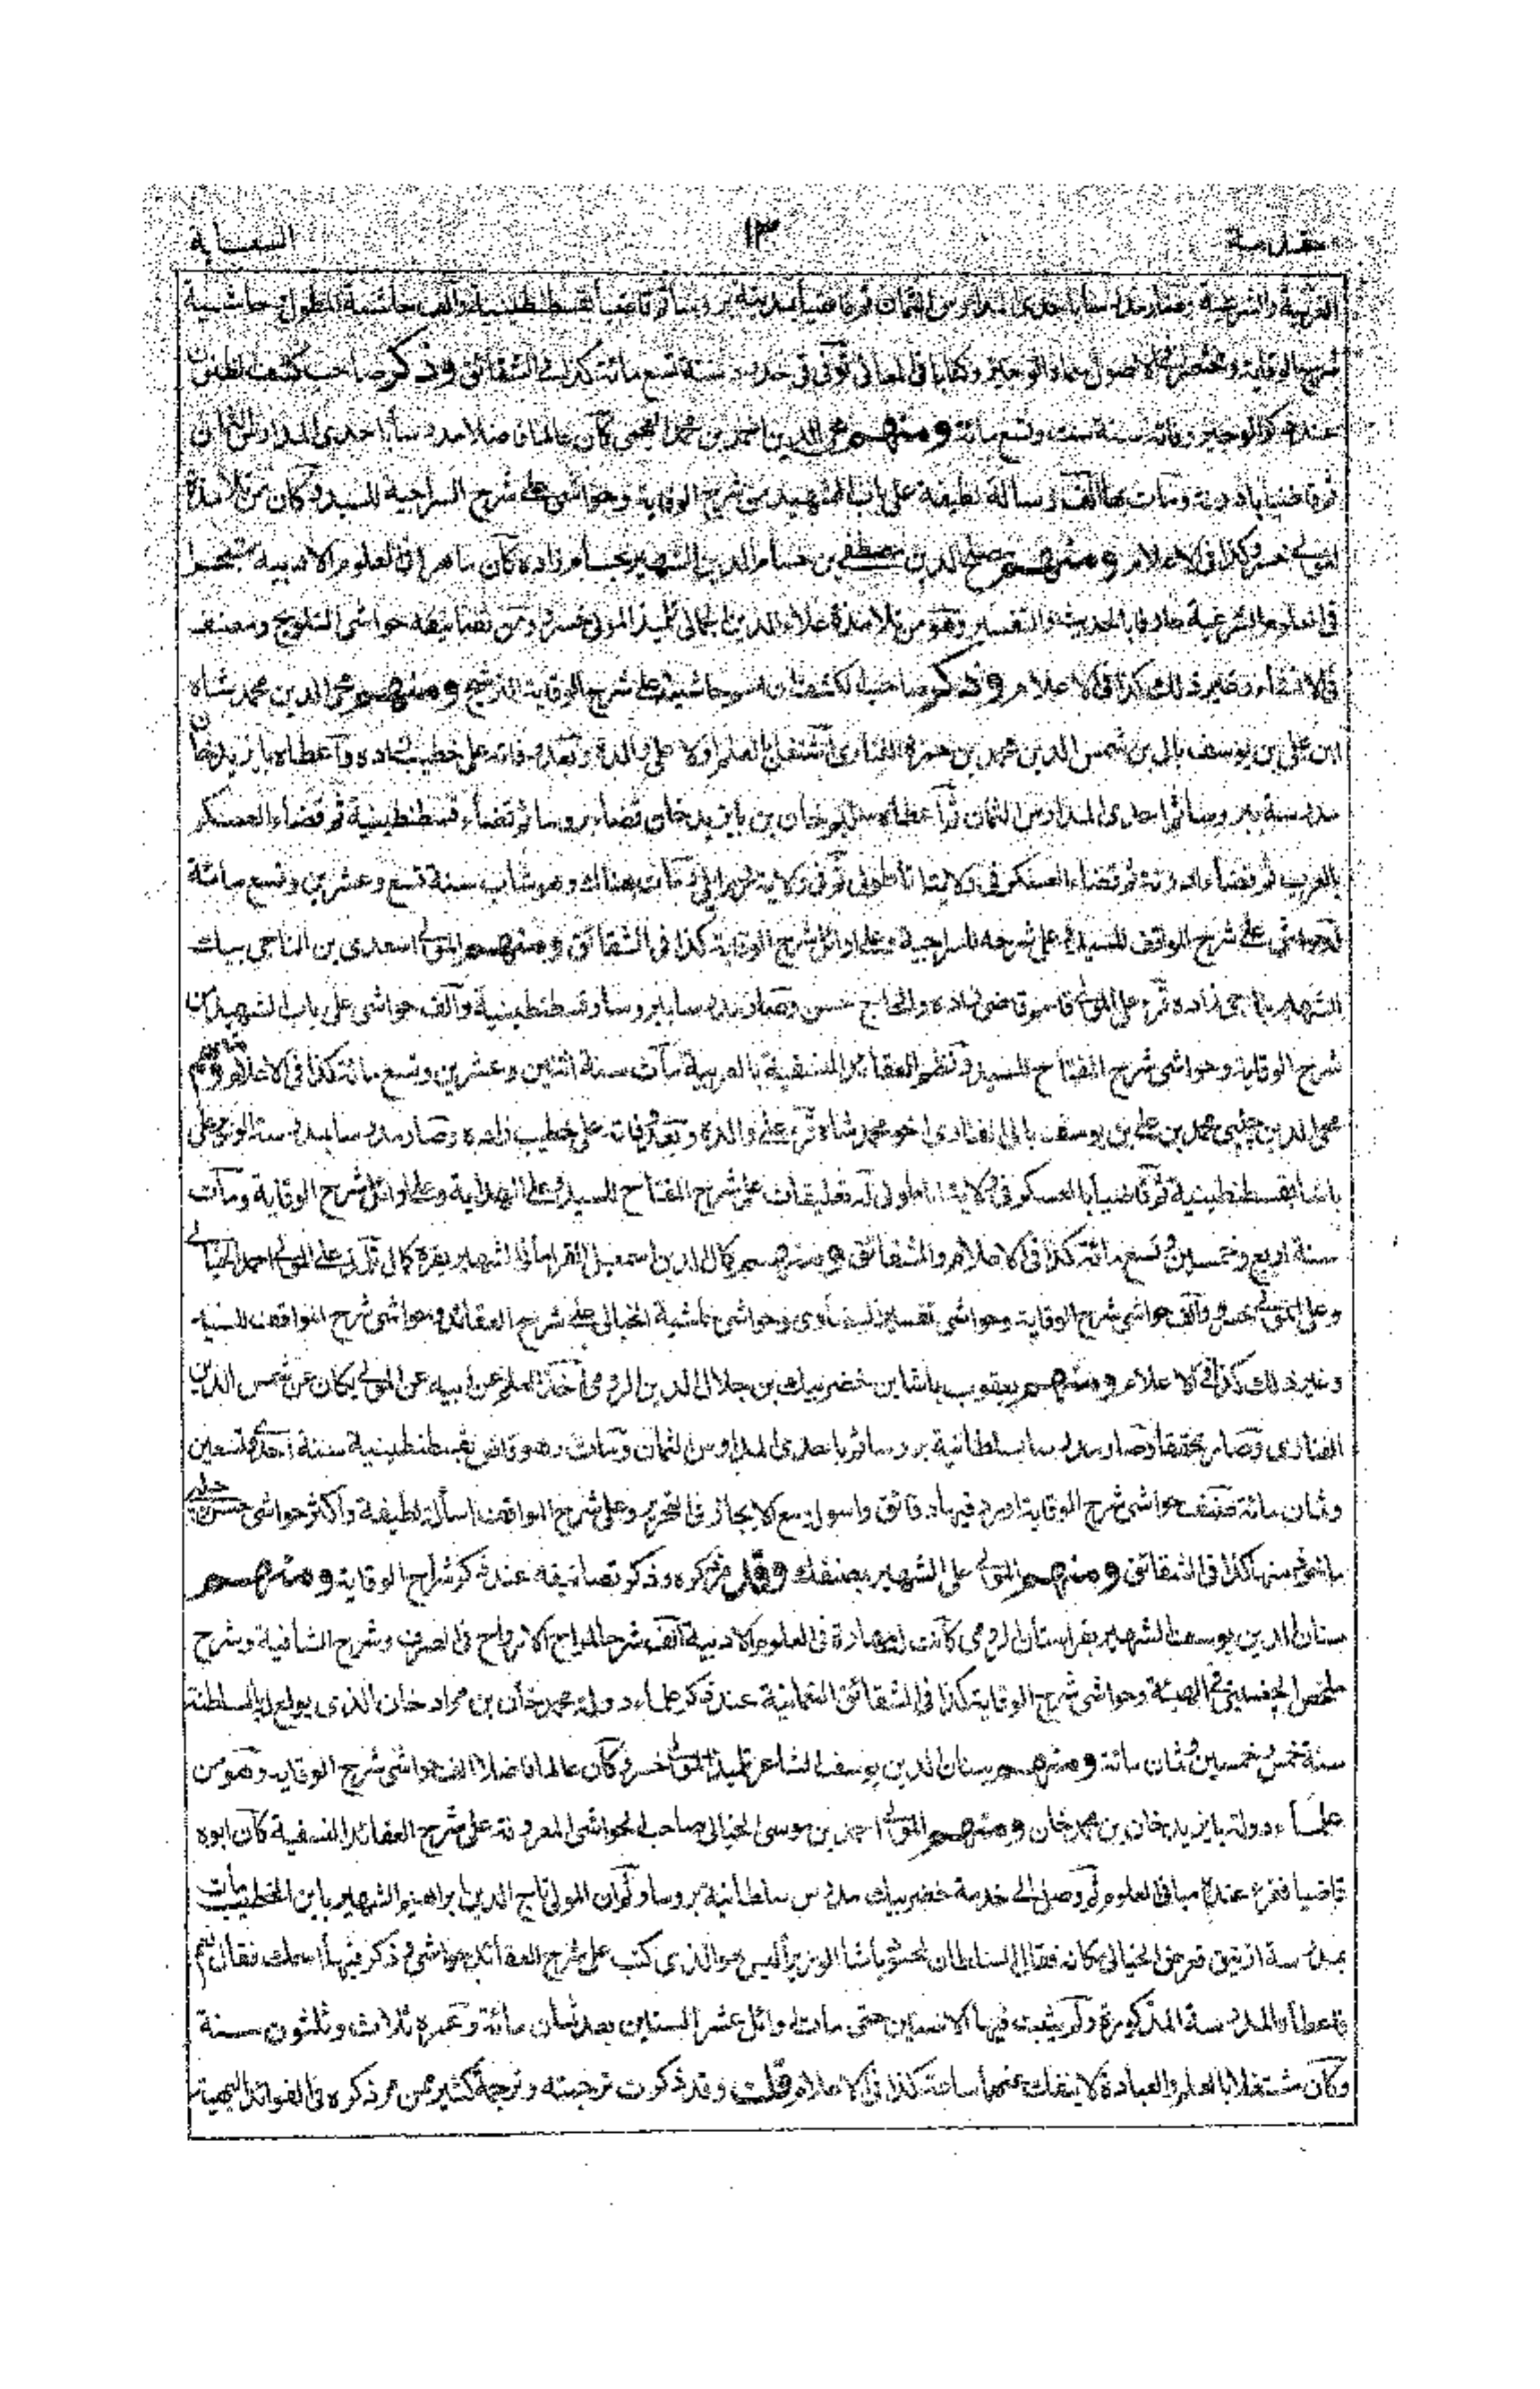 مقدمة ١٣ السعاية
العربية والشرعية وصار مدرسا باحدى المدارس الثمان ثم قاضيا بمدينة بروسا ثم قاضيا بقسطنطينية والف حاشية للمطول وحاشية
شرح الوقاية ومختصرا في الاصول سماه الوجيز وكتابا في المعاني توفي في حدود سنة تسع مائة كذا في الشقائق وذكر صاحب كشف الظنون
عند ذكر الوجيز وفاته سنة ست وتسع مائة ومنهم محي الدين محمد بن محمد العجمي كان عالما فاضلا مدرسا باحدى المدارس الثمان
ثم قاضيا بادرنة ومات بها الف رسالة لطيفة على باب الشهيد من شرح الوقاية وحواشي على شرح السراجية للسيد وكان من تلامذة
المولى خسرو كذا في الاعلام ومنهم مصلح الدين مصطفى بن حسام الدين الشهير بحسام زاده كان ماهرا في العلوم الادبية
في العلوم الشرعية عارفا بالحديث والتفسير وهو من تلامذة علاء الدين الجمالي تلميذ المولى خسرو ومن تصانيفه حواشي التلويح ومصنف
في الانشاء وغير ذلك كذا في الاعلام وذكر صاحب الكشف ان اسم حاشيته على شرح الوقاية التوشيح ومنهم محي الدين محمد شاه
ابن علي بن يوسف بالي بن شمس الدين محمد بن حمزة الفناري اشتغل بالعلم اولا على والده وبعد وفاته على خطيب زاده واعطاه بايزيد خان
مدرسة بروسا ثم احدى المدارس الثمان ثم اعطاه سليم خان بن بايزيد خان قضاء بروسا ثم قضاء قسطنطينية ثم قضاء العسكر
بالعرب ثم قضاء ادرنة ثم قضاء العسكر في ولاية اناطولي ثم في ولاية روم ايلي ومات هناك وهو شاب سنة تسع وعشرين وتسع مائة
له حواشي على شرح المواقف للسيد وعلى شرحه للسراجية وعلى اوائل شرح الوقاية كذا في الشقائق ومنهم المولى اسعدي بن الناجي بيك
الشهير بناجي زاده قرأ على المولى قاسم وقاضي زاده والحاج حسن وصار مدرسا ببروسا وقسطنطينية والف حواشي على باب الشهيد من
شرح الوقاية وحواشي شرح المفتاح للسيد ونظم العقائد النسفية بالعربية مات سنة اثنين وعشرين وتسع مائة كذا في الاعلام ومنهم
محي الدين چلبي محمد بن علي بن يوسف بالي الفناري اخو محمد شاه قرأ على والده وبعد وفاته على خطيب زاده وصار مدرسا بمدرسة الوزير علي
باشا بقسطنطينية ثم قاضيا بالعسكر في ولاية اناطولي له تعليقات على شرح المفتاح للسيد وعلى الهداية وعلى اوائل شرح الوقاية ومات
سنة اربع وخمسين وتسع مائة كذا في الاعلام والشقائق ومنهم كمال الدين اسمعيل القراماني الشهير بقره كمال تلمذ على المولى احمد الخيالي
وعلى المولى خسرو والف حواشي شرح الوقاية وحواشي تفسير البيضاوي وحواشي حاشية الخيالي على شرح العقائد وحواشي شرح المواقف للسيد
وغير ذلك كذا في الاعلام ومنهم يعقوب باشا بن خضر بيك بن جلال الدين الرومي اخذ العلم عن ابيه عن المولى يكان عن شمس الدين
الفناري وصار محققا وصار مدرسا بسلطانية بروسا ثم باحدى المدارس الثمان ومات وهو قاض بقسطنطينية سنة احدى وتسعين
وثمان مائة صنف حواشي شرح الوقاية اورد فيها دقائق واسولة مع الايجاز في التحرير وعلى شرح المواقف اسألة لطيفة واكثر حواشي حسن چلبي
ماخوذ منها كذا في الشقائق ومنهم المولى علي الشهير بمصنفك وقد مر ذكره وذكر تصانيفه عند ذكر شراح الوقاية ومنهم
سنان الدين يوسف الشهير بقره سنان الرومي كانت له مهارة في العلوم الادبية الف شرحا لمراح الارواح في الصرف وشرح الشافية وشرح
ملخص الچغميني في الهيئة وحواشي شرح الوقاية كذا في الشقائق النعمانية عند ذكر علماء دولة محمد خان بن مراد خان الذي بويع له بالسلطنة
سنة خمس وخمسين وثمان مائة ومنهم سنان الدين يوسف الشاعر تلميذ المولى خسرو كان عالما فاضلا الف حواشي شرح الوقاية وهو من
علماء دولة بايزيد خان بن محمد خان ومنهم المولى احمد بن موسى الخيالي صاحب الحواشي المعروفة على شرح العقائد النسفية كان ابوه
قاضيا فقرأ عنده مباني العلوم ثم وصل الى خدمة خضر بيك مدرس سلطانية بروسا ولما ان المولى تاج الدين ابراهيم الشهير بابن الخطيب مات
بمدرسة ازنيق فرض الخيالي مكانه فقال السلطان لمحمود باشا الوزير أليس هو الذي كتب على شرح العقائد حواشي وذكر فيها اسمك فقال نعم
فاعطاه المدرسة المذكورة ولم يثبت فيها الا سنين حتى مات اوائل عشر الستين بعد ثمان مائة وعمره ثلاث وثلثون سنة
وكان مشتغلا بالعلم والعبادة لا ينفك عنهما ساعة كذا في الاعلام قلت وقد ذكرت ترجمته وترجمة كثير ممن مر ذكره في الفوائد البهية